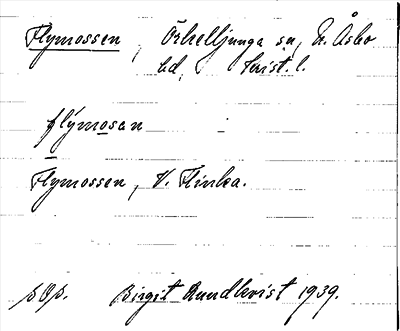 Flymossen, Örkelljunga sn, N. Åsbo
hd, Krist. l.
flýmosan
Flymossen, V. Flinka.
pOp. Birgit Rundkvist 1939.